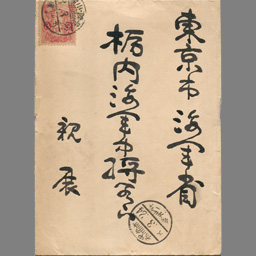 東京市海軍省
栃内海軍中将閣下
親展